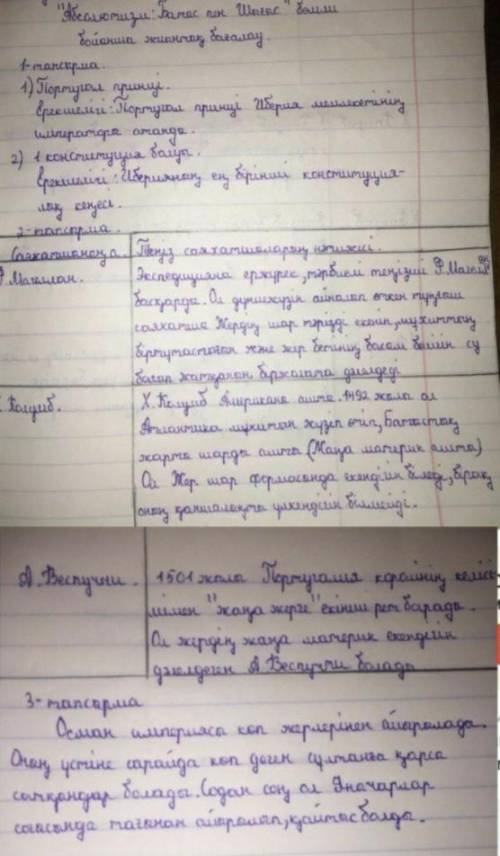 "Абсолютизм: Батыс пен Шығыс" бөлімі
бойынша жиынтық бағалау.
1-тапсырма.
1) Португал принці.
Ерекшелігі: Португал принці Иберия мемлекетінің
императоры атанды.
2) 1 конституция болуы.
Ерекшелігі: Иберияның ең бірінші конституция-
лық кеңесі.
2-тапсырма.
Саяхатшының а. Теңіз саяхатшыларының нәтижесі.
Магеллан. Экспедицияны ержүрек, тәрбиелі теңізші Ф. Магеллан
басқарды. Ол дүниежүзін айналып өткен тұңғыш
саяхатшы Жердің шар тәрізді екенін, мұхиттың
біртұтастығын және жер бетінің басым бөлігін су
басып жатқанын біржолата дәлелдеді
Колумб. Х. Колумб Американы ашты. 1492 жылы ол
Атлантика мұхитын жүзіп өтіп, Батыстық
жарты шарды ашты (Жаңа материк ашты)
Ол Жер шар формасында екендігін біледі, бірақ
оның қаншалықты үлкендігін білмейді.
А. Веспуччи. 1501 жылы Португалия королінің келісі-
мімен "жаңа жерге" екінші рет барады.
Ол жердің жаңа материк екендігін
дәлелдеген А. Веспуччи болады
3-тапсырма
Осман империясы көп жерлерінен айырылады.
Оның үстіне сарайда көп деген сұлтанға қарсы
сатқындар болады. Содан соң ол Яначарлар
соғысында тағынан айырылып, қайтыс болды.